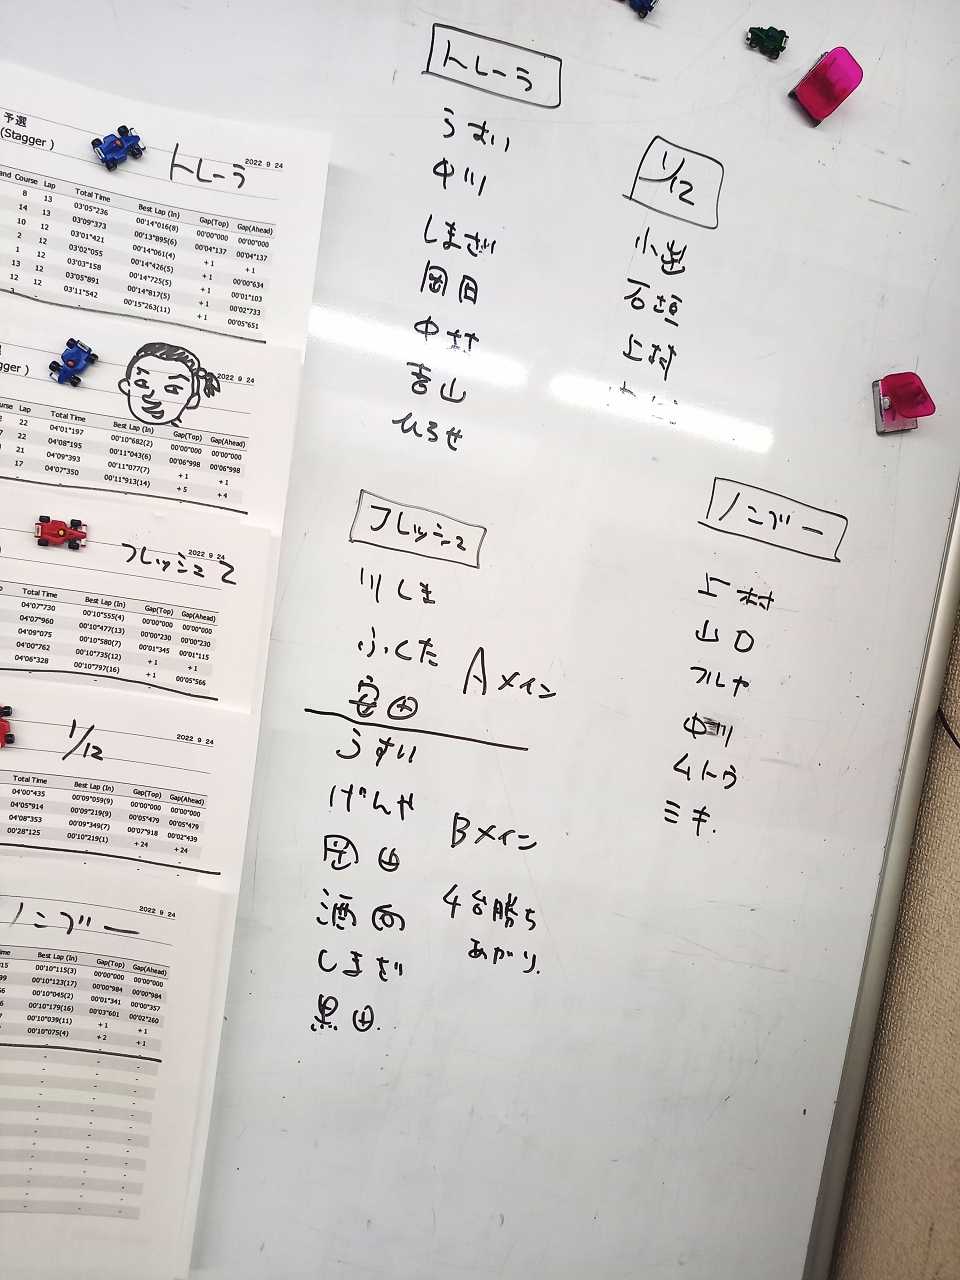 予選
(Stagger )
2022 9 24
トレーラ
and Course Lap Total Time Best Lap (In) Gap(Top) Gap(Ahead)
8 13 03'05"236 00'14"016(8) 00'00"000 00'00"000
14 13 03'09"373 00'13"895(6) 00'04"137 00'04"137
10 12 03'01"421 00'14"061(4) +1 +1
2 12 03'02"055 00'14"426(5) +1 00'00"634
1 12 03'03"158 00'14"725(5) +1 00'01"103
13 12 03'05"891 00'14"817(5) +1 00'02"733
12 12 03'11"542 00'15"263(11) +1 00'05"651
2022 9 24
gger )
ourse Lap Total Time Best Lap (In) Gap(Top) Gap(Ahead)
22 04'01"197 00'10"682(2) 00'00"000 00'00"000
22 04'08"195 00'11"043(6) 00'06"998 00'06"998
21 04'09"393 00'11"077(7) +1 +1
17 04'07"350 00'11"913(14) +5 +4
2022 9 24
フレッシュ 2
Total Time Best Lap (In) Gap(Top) Gap(Ahead)
04'07"730 00'10"555(4) 00'00"000 00'00"000
04'07"960 00'10"477(13) 00'00"230 00'00"230
04'09"075 00'10"580(7) 00'01"345 00'01"115
04'00"762 00'10"735(12) +1 +1
04'06"328 00'10"797(16) +1 00'05"566
1/12
2022 9 24
Total Time Best Lap (In) Gap(Top) Gap(Ahead)
04'00"435 00'09"059(9) 00'00"000 00'00"000
04'05"914 00'09"219(9) 00'05"479 00'05"479
04'08"353 00'09"349(7) 00'07"918 00'02"439
00'28"125 00'10"219(1) +24 +24
2022 9 24
ノンブー
ime Best Lap (In) Gap(Top) Gap(Ahead)
015 00'10"115(3) 00'00"000 00'00"000
99 00'10"123(17) 00'00"984 00'00"984
00'10"045(2) 00'01"341 00'00"357
00'10"179(16) 00'03"601 00'02"260
00'10"039(11) +1 +1
00'10"075(4) +2 +1
トレーラ
うすい
中川
しまざい
岡田
中村
吉山
ひろせ
1/12
小岩
石垣
上村
フレッシュ
川しま
ふくた
安田
Aメイン
うすい
げんや
岡田
酒向
しまざい
黒田
Bメイン
4台勝ち
あがり.
ノンブー
上村
山口
フルヤ
中川
ムトウ
ミキ.